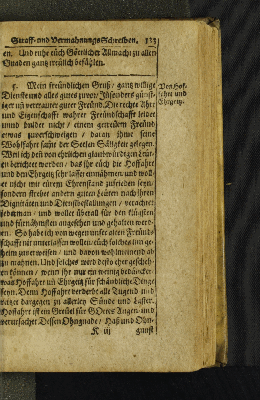 Straff- und Vermahnungs Schreiben. 133
en. Und euhe euch Göttlicher Allmacht zu allen
Gnaden gantz treülich befählen.
5. Mein freündlichen Gruß / gantz willige
Dienst und alles gutes zuvor / Insonders günst-
iger und vertrauter guter Freünd. Die rechte Ahrt
und Eigenschafft wahrer Freündschafft leidet
und duldet nicht / einem getreüen Freünd
etwas zuverschweigen / daran ihme seine
Wohlfahrt samt der Seelen Säligkeit gelegen.
Weil ich den von ehrlichen glaubwürdigen
en berichtet worden / das ihr euch die Hoffahrt
und den Ehrgeitz sehr lasset einnähmen / und wol-
et nicht mit eürem Ehrenstand zufrieden seyn /
sondern strebet andern guten Leüten nach ihren
Dignitäten und Dienstbestallungen / verachtet
jederman / und wollet überall für den klügsten
und fürnähmsten angesehen und gehalten werd-
en. So habe ich von wegen unser alten Freünd-
schafft nit unterlassen wollen / euch solches in ge-
heim zuverweisen / und davon wohlmeinend ab
zu mahnen. Und solches ward desto eher gescheh-
en können / wenn ihr nur ein wenig bedäncket /
was Hoffahrt und Ehrgeitz für schändliche Dinge
seyn. Denn Hoffahrt verderbt alle Tugend und
reitzet dargegen zu allerley Sünde und Laster.
Hoffahrt ist ein Greüel für GOttes Augen / und
verursachet Dessen Ohngnade / Haß und Ohn-
K iij gunst
Von Hof-
fahrt und
Ehrgeitz.